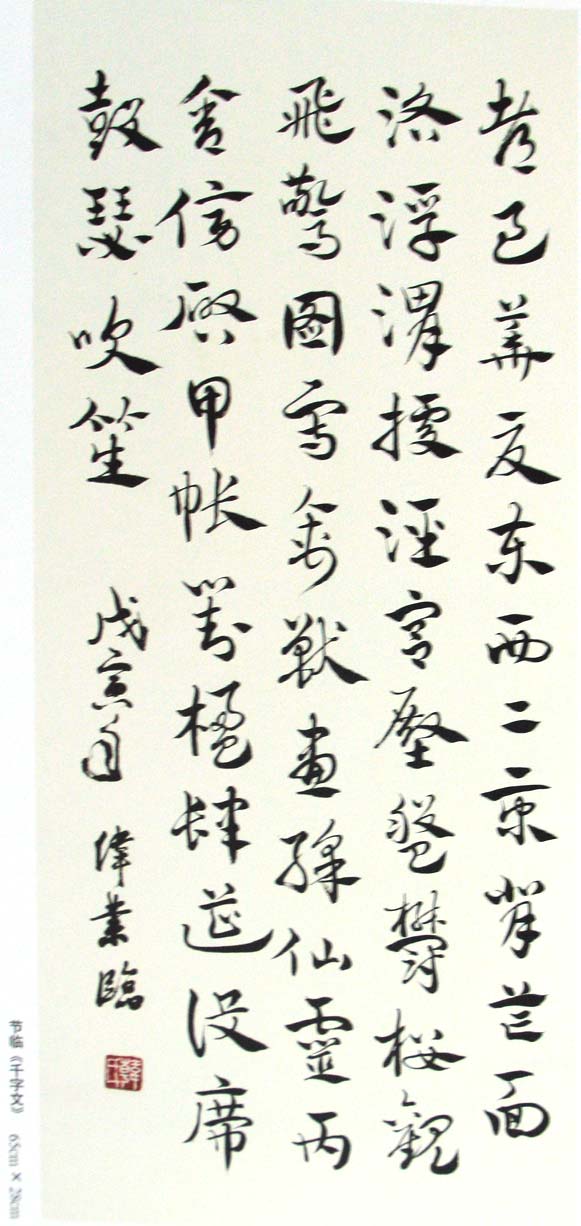 都邑華夏東西二京背芒面
洛浮渭據涇宮殿盤鬱樓觀
飛驚圖寫禽獸畫綵仙靈丙
舍傍啓甲帳對楹肆筵設席
鼓瑟吹笙 戊寅年 偉業臨
节临《千字文》 65cm × 28cm